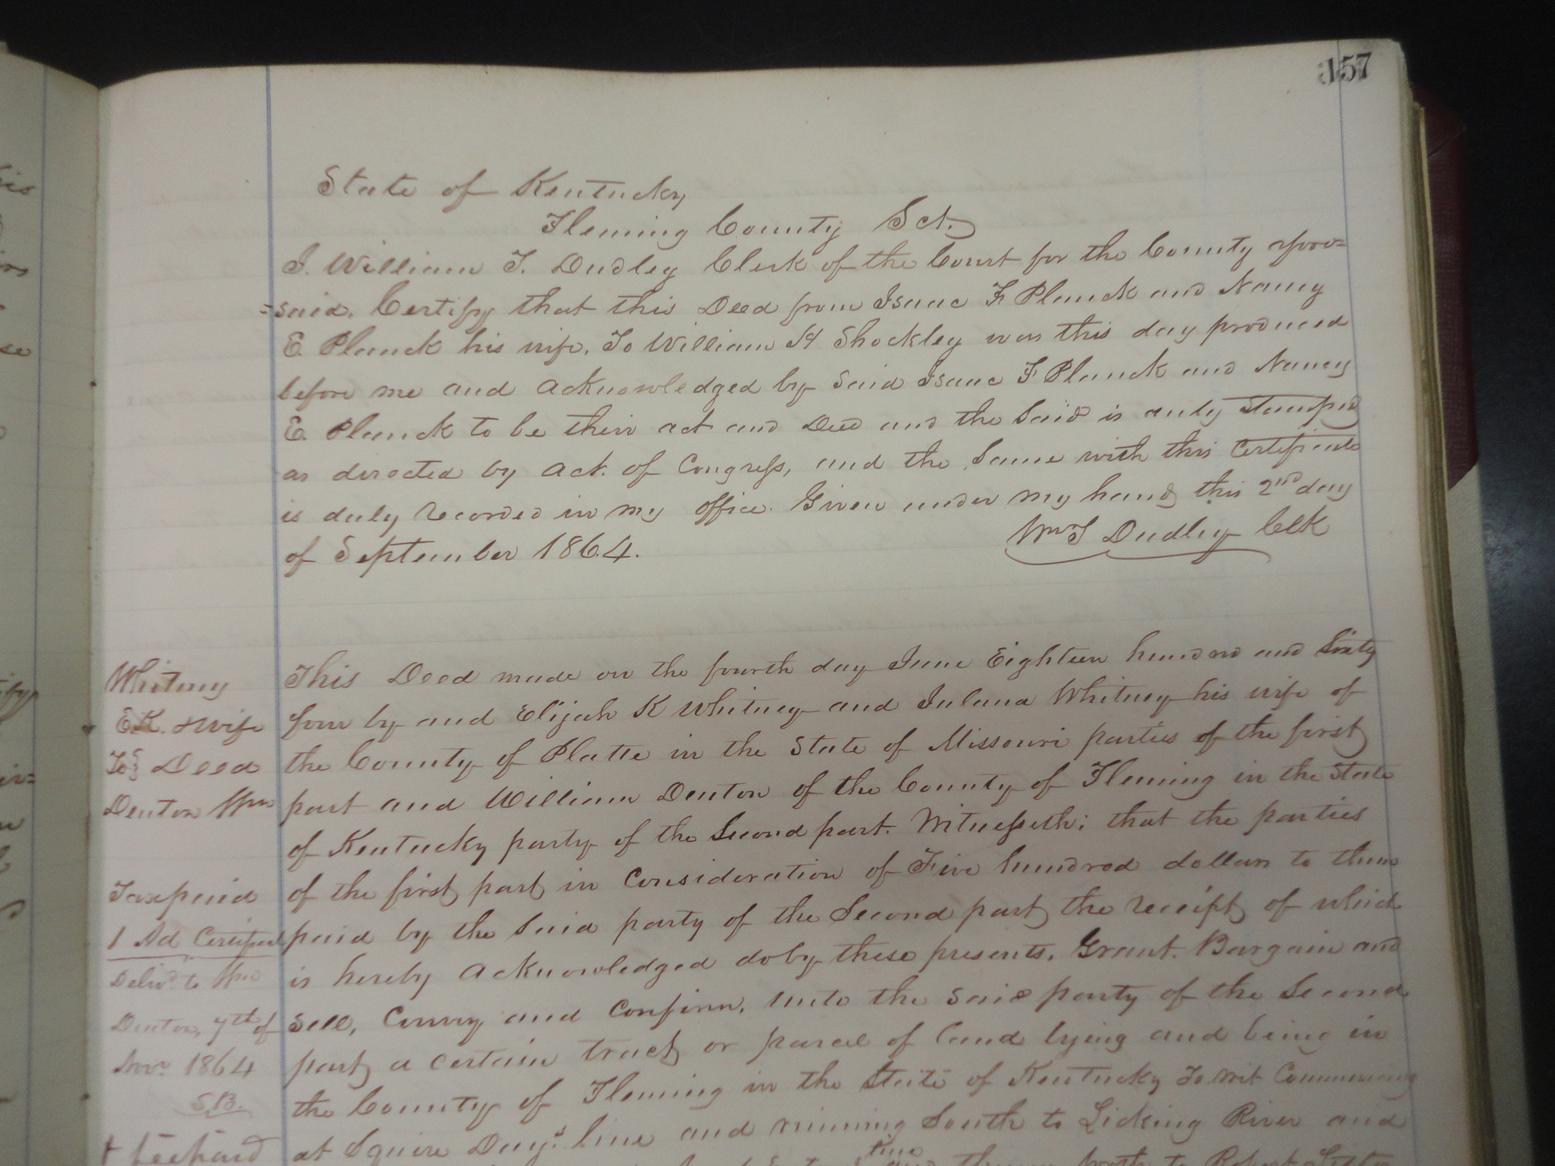 157
State of Kentucky
Fleming County Sct.
I. William T. Dudley Clerk of the Court for the County afore=
=said. Certify that this Deed from Isaac F. Planck and Nancy
E Planck his wife. To William H Shockley was this day produced
before me and acknowledged by Said Isaac F Planck and Nancy
E Planck to be their act and Deed and the Said is duly Stamped
as directed by act. of Congress, and the Same with this Certificate
is duly recorded in my office. Given under my hand this 2nd day
of September 1864.
Wm T Dudley Clk
Whitney
E.K. & Wife
To } Deed
Denton Wm
This Deed made on the fourth day June Eighteen hundred and Sixty
four by and Elijah K Whitney and Whitney his wife of
the County of Platte in the State of Missouri parties of the first
part and William Denton of the County of Fleming in the State
of Kentucky party of the Second part. Witnesseth; that the parties
of the first part in Consideration of Five hundred dollars to them
paid by the Said party of the Second part the receipt of which
is hereby acknowledged do by these presents. Grant. Bargain and
Sell, Convey and Confirm, unto the Said party of the Second
part a certain tract or parcel of land lying and being in
the County of Fleming in the State of Kentucky To wit Commencing
at Squire Day's line and running South to Licking River and
Tax paid
1 Ad Certificate
Deliv'd to Wm
Denton, 7th of
Nov. 1864
S.B.
line
to Robert